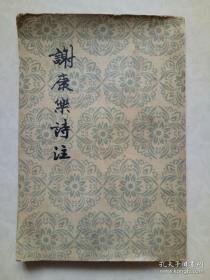 謝康樂詩注
孔夫子旧书网